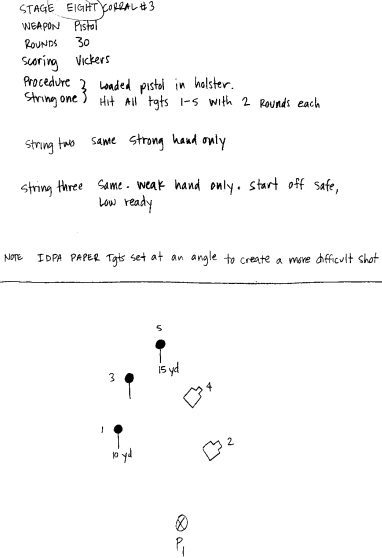 STAGE EIGHT CORRAL #3
WEAPON Pistol
ROUNDS 30
Scoring Vickers
Procedure } Loaded pistol in holster.
String one } Hit All tgts 1-5 with 2 Rounds each
String two same strong hand only
String three Same. weak hand only. Start off safe,
Low ready
NOTE IDPA PAPER Tgts set at an angle to create a more difficult shot
5
15 yd
3
4
1
10 yd
2
P1